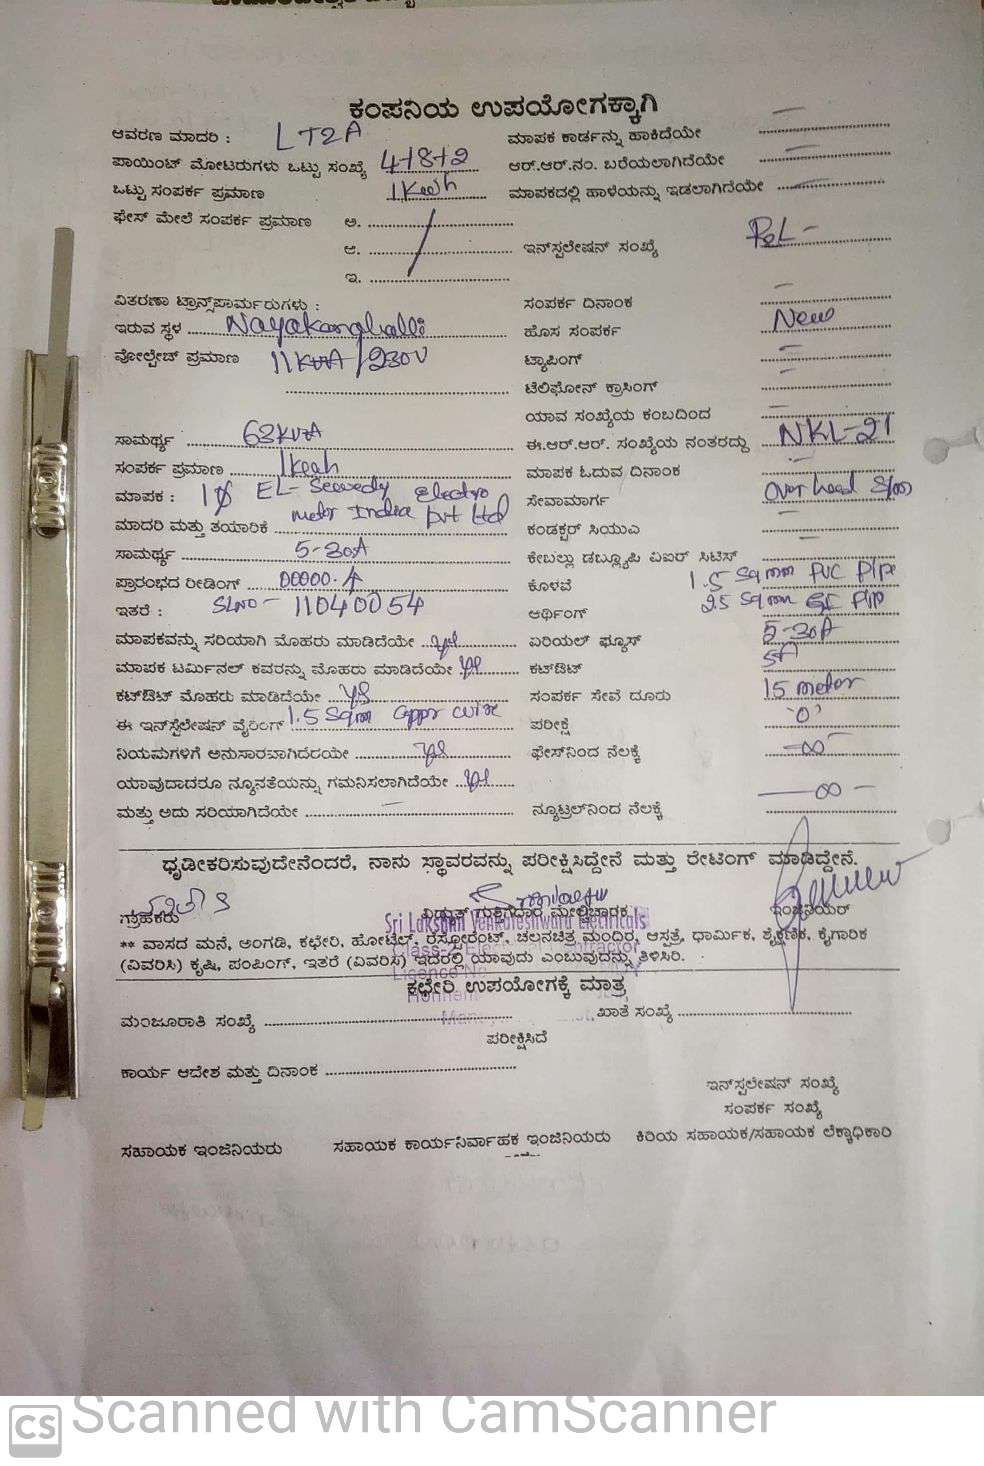 ಕಂಪನಿಯ ಉಪಯೋಗಕ್ಕಾಗಿ
ಆವರಣ ಮಾದರಿ : LT2A
ಮಾಪಕ ಕಾರ್ಡನ್ನು ಹಾಕಿದೆಯೇ
ಪಾಯಿಂಟ್ ಮೋಟರುಗಳು ಒಟ್ಟು ಸಂಖ್ಯೆ 4+8+2
ಆರ್.ಆರ್.ನಂ. ಬರೆಯಲಾಗಿದೆಯೇ
ಒಟ್ಟು ಸಂಪರ್ಕ ಪ್ರಮಾಣ
ಮಾಪಕದಲ್ಲಿ ಹಾಳೆಯನ್ನು ಇಡಲಾಗಿದೆಯೇ
ಫೇಸ್ ಮೇಲೆ ಸಂಪರ್ಕ ಪ್ರಮಾಣ ಅ.
ಆ.
ಇನ್‌ಸ್ಪಲೇಷನ್ ಸಂಖ್ಯೆ
ಇ.
ವಿತರಣಾ ಟ್ರಾನ್ಸ್‌ಪಾರ್ಮರುಗಳು :
ಸಂಪರ್ಕ ದಿನಾಂಕ
ಇರುವ ಸ್ಥಳ Nayakanahalli
ಹೊಸ ಸಂಪರ್ಕ New
ವೋಲ್ಟೇಜ್ ಪ್ರಮಾಣ 11KVA/230V
ಟ್ಯಾಪಿಂಗ್
ಟೆಲಿಫೋನ್ ಕ್ರಾಸಿಂಗ್
ಯಾವ ಸಂಖ್ಯೆಯ ಕಂಬದಿಂದ
ಸಾಮರ್ಥ್ಯ 63KVA
ಈ.ಆರ್.ಆರ್. ಸಂಖ್ಯೆಯ ನಂತರದ್ದು NKL-21
ಸಂಪರ್ಕ ಪ್ರಮಾಣ
ಮಾಪಕ ಓದುವ ದಿನಾಂಕ
ಮಾಪಕ : 1φ EL-Sewedy Electro
ಸೇವಾಮಾರ್ಗ Over head
ಮಾದರಿ ಮತ್ತು ತಯಾರಿಕೆ meter India Pvt Ltd
ಕಂಡಕ್ಟರ್ ಸಿಯುಎ
ಸಾಮರ್ಥ್ಯ 5-30A
ಕೇಬಲ್ಲು ಡಬ್ಲ್ಯೂಪಿ ವಿಐರ್ ಸಿಟಿಸ್
ಪ್ರಾರಂಭದ ರೀಡಿಂಗ್ 00000.4
ಕೊಳವೆ 1.5 Sqmm PVC Pipe
ಇತರೆ : SLNO - 11040054
ಆರ್ಥಿಂಗ್ 25 Sqmm GI Pip
ಮಾಪಕವನ್ನು ಸರಿಯಾಗಿ ಮೊಹರು ಮಾಡಿದೆಯೇ yes
ಏರಿಯಲ್ ಫ್ಯೂಸ್ 5-30A
ಮಾಪಕ ಟರ್ಮಿನಲ್ ಕವರನ್ನು ಮೊಹರು ಮಾಡಿದೆಯೇ yes
ಕಟ್‌ಔಟ್ 5A
ಕಟ್‌ಔಟ್ ಮೊಹರು ಮಾಡಿದೆಯೇ yes
ಸಂಪರ್ಕ ಸೇವೆ ದೂರು 15 meter
ಈ ಇನ್‌ಸ್ಟೆಲೇಷನ್ ವೈರಿಂಗ್ 1.5 Sqmm Coppr wire
ಪರೀಕ್ಷೆ '0'
ನಿಯಮಗಳಿಗೆ ಅನುಸಾರವಾಗಿದೆರಯೇ yes
ಫೇಸ್‌ನಿಂದ ನೆಲಕ್ಕೆ ∞
ಯಾವುದಾದರೂ ನ್ಯೂನತೆಯನ್ನು ಗಮನಿಸಲಾಗಿದೆಯೇ yes
ಮತ್ತು ಅದು ಸರಿಯಾಗಿದೆಯೇ
ನ್ಯೂಟ್ರಲ್‌ನಿಂದ ನೆಲಕ್ಕೆ ∞
ಧೃಡೀಕರಿಸುವುದೇನೆಂದರೆ, ನಾನು ಸ್ಥಾವರವನ್ನು ಪರೀಕ್ಷಿಸಿದ್ದೇನೆ ಮತ್ತು ರೇಟಿಂಗ್ ಮಾಡಿದ್ದೇನೆ.
ಗ್ರಾಹಕರು
ವಿದ್ಯುತ್ ಗುತ್ತಿಗೆದಾರ ಮೇಲ್ವಿಚಾರಕ
ಇಂಜಿನಿಯರ್
Sri Lakshmi Venkateshwara Electricals
** ವಾಸದ ಮನೆ, ಅಂಗಡಿ, ಕಛೇರಿ, ಹೋಟೆಲ್, ರೆಸ್ಟೋರೆಂಟ್, ಚಲನಚಿತ್ರ ಮಂದಿರ, ಆಸ್ಪತ್ರೆ, ಧಾರ್ಮಿಕ, ಶೈಕ್ಷಣಿಕ, ಕೈಗಾರಿಕ
(ವಿವರಿಸಿ) ಕೃಷಿ, ಪಂಪಿಂಗ್, ಇತರೆ (ವಿವರಿಸಿ) ಇದರಲ್ಲಿ ಯಾವುದು ಎಂಬುವುದನ್ನು ತಿಳಿಸಿರಿ.
ಕಛೇರಿ ಉಪಯೋಗಕ್ಕೆ ಮಾತ್ರ
ಮಂಜೂರಾತಿ ಸಂಖ್ಯೆ
ಖಾತೆ ಸಂಖ್ಯೆ
ಪರೀಕ್ಷಿಸಿದೆ
ಕಾರ್ಯ ಆದೇಶ ಮತ್ತು ದಿನಾಂಕ
ಇನ್‌ಸ್ಪಲೇಷನ್ ಸಂಖ್ಯೆ
ಸಂಪರ್ಕ ಸಂಖ್ಯೆ
ಸಹಾಯಕ ಇಂಜಿನಿಯರು
ಸಹಾಯಕ ಕಾರ್ಯನಿರ್ವಾಹಕ ಇಂಜಿನಿಯರು
ಕಿರಿಯ ಸಹಾಯಕ/ಸಹಾಯಕ ಲೆಕ್ಕಾಧಿಕಾರಿ
CS Scanned with CamScanner